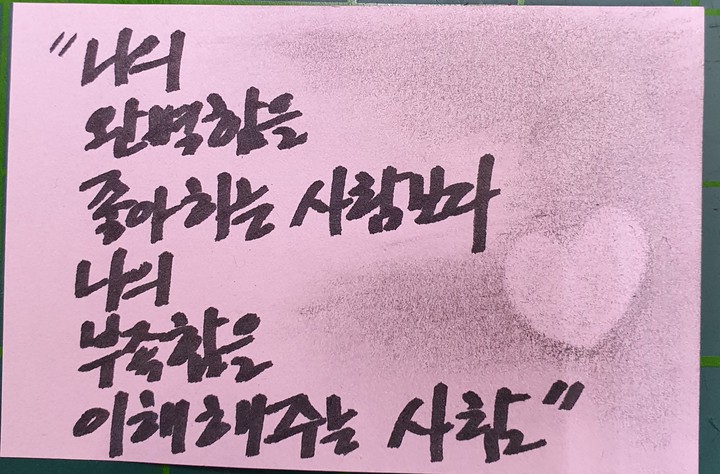 "나의
완벽함을
좋아하는 사람보다
나의
부족함을
이해해주는 사람"